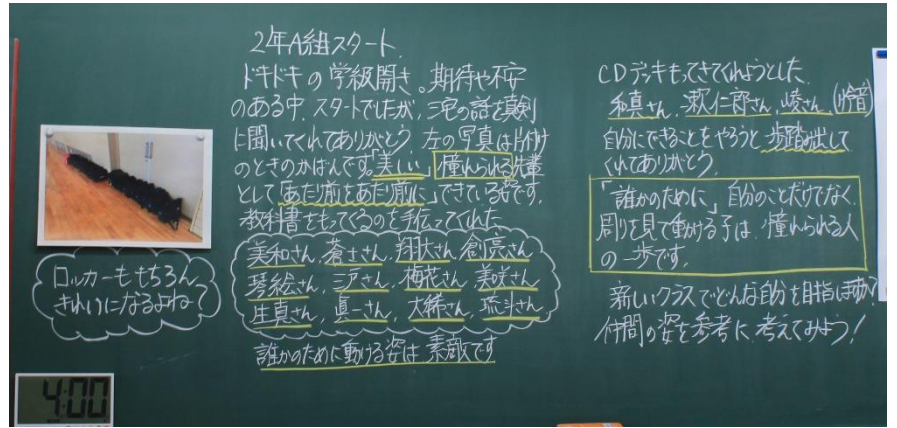 2年A組スタート
ドキドキの学級開き。期待や不安
のある中、スタートでしたが、三宅の話を真剣
に聞いてくれてありがとう。左の写真は片付け
のときのかばんです。「美しい」憧れられる先輩
として「あたり前をあたり前に」できている姿です。
教科書をもってくるのを手伝ってくれた
美和さん、蒼士さん、翔大さん、創亮さん
琴絵さん、三戸さん、梅花さん、美咲さん
庄真さん、真一さん、大稀さん、琉斗さん
誰かのために動ける姿は素敵です
ロッカーももちろん
きれいになるよね?
4:00
CDデッキもってきてくれようとした
和真さん、
仁郎さん、崚さん
自分にできることをやろうと一歩踏み出して
くれてありがとう。
「誰かのために」自分のことだけでなく
周りを見て動ける子は、憧れられる人
の一歩です。
新しいクラスでどんな自分を目指しますか?
仲間の姿を参考に、考えてみよう!